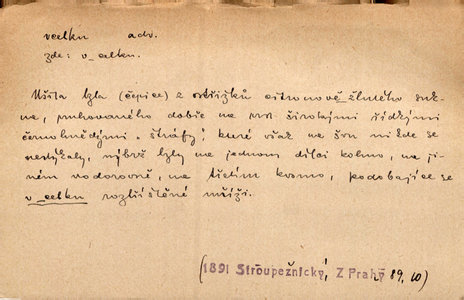 vcelku adv.
zde: v_celku.
Ušita byla (čepice) z odstřižků citronově žlutého suk-
na, pruhovaného dobře na prst širokými řídkými
černohnědými „štráfy“, které však na švu nikde se
nestýkaly, nýbrž byly na jednom dílci kolmo, na ji-
ném vodorovně, na třetím kosmo, podobajíce se
v_celku roztříštěné mříži.
(1891 Stroupežnický, Z Prahy 89, 10)